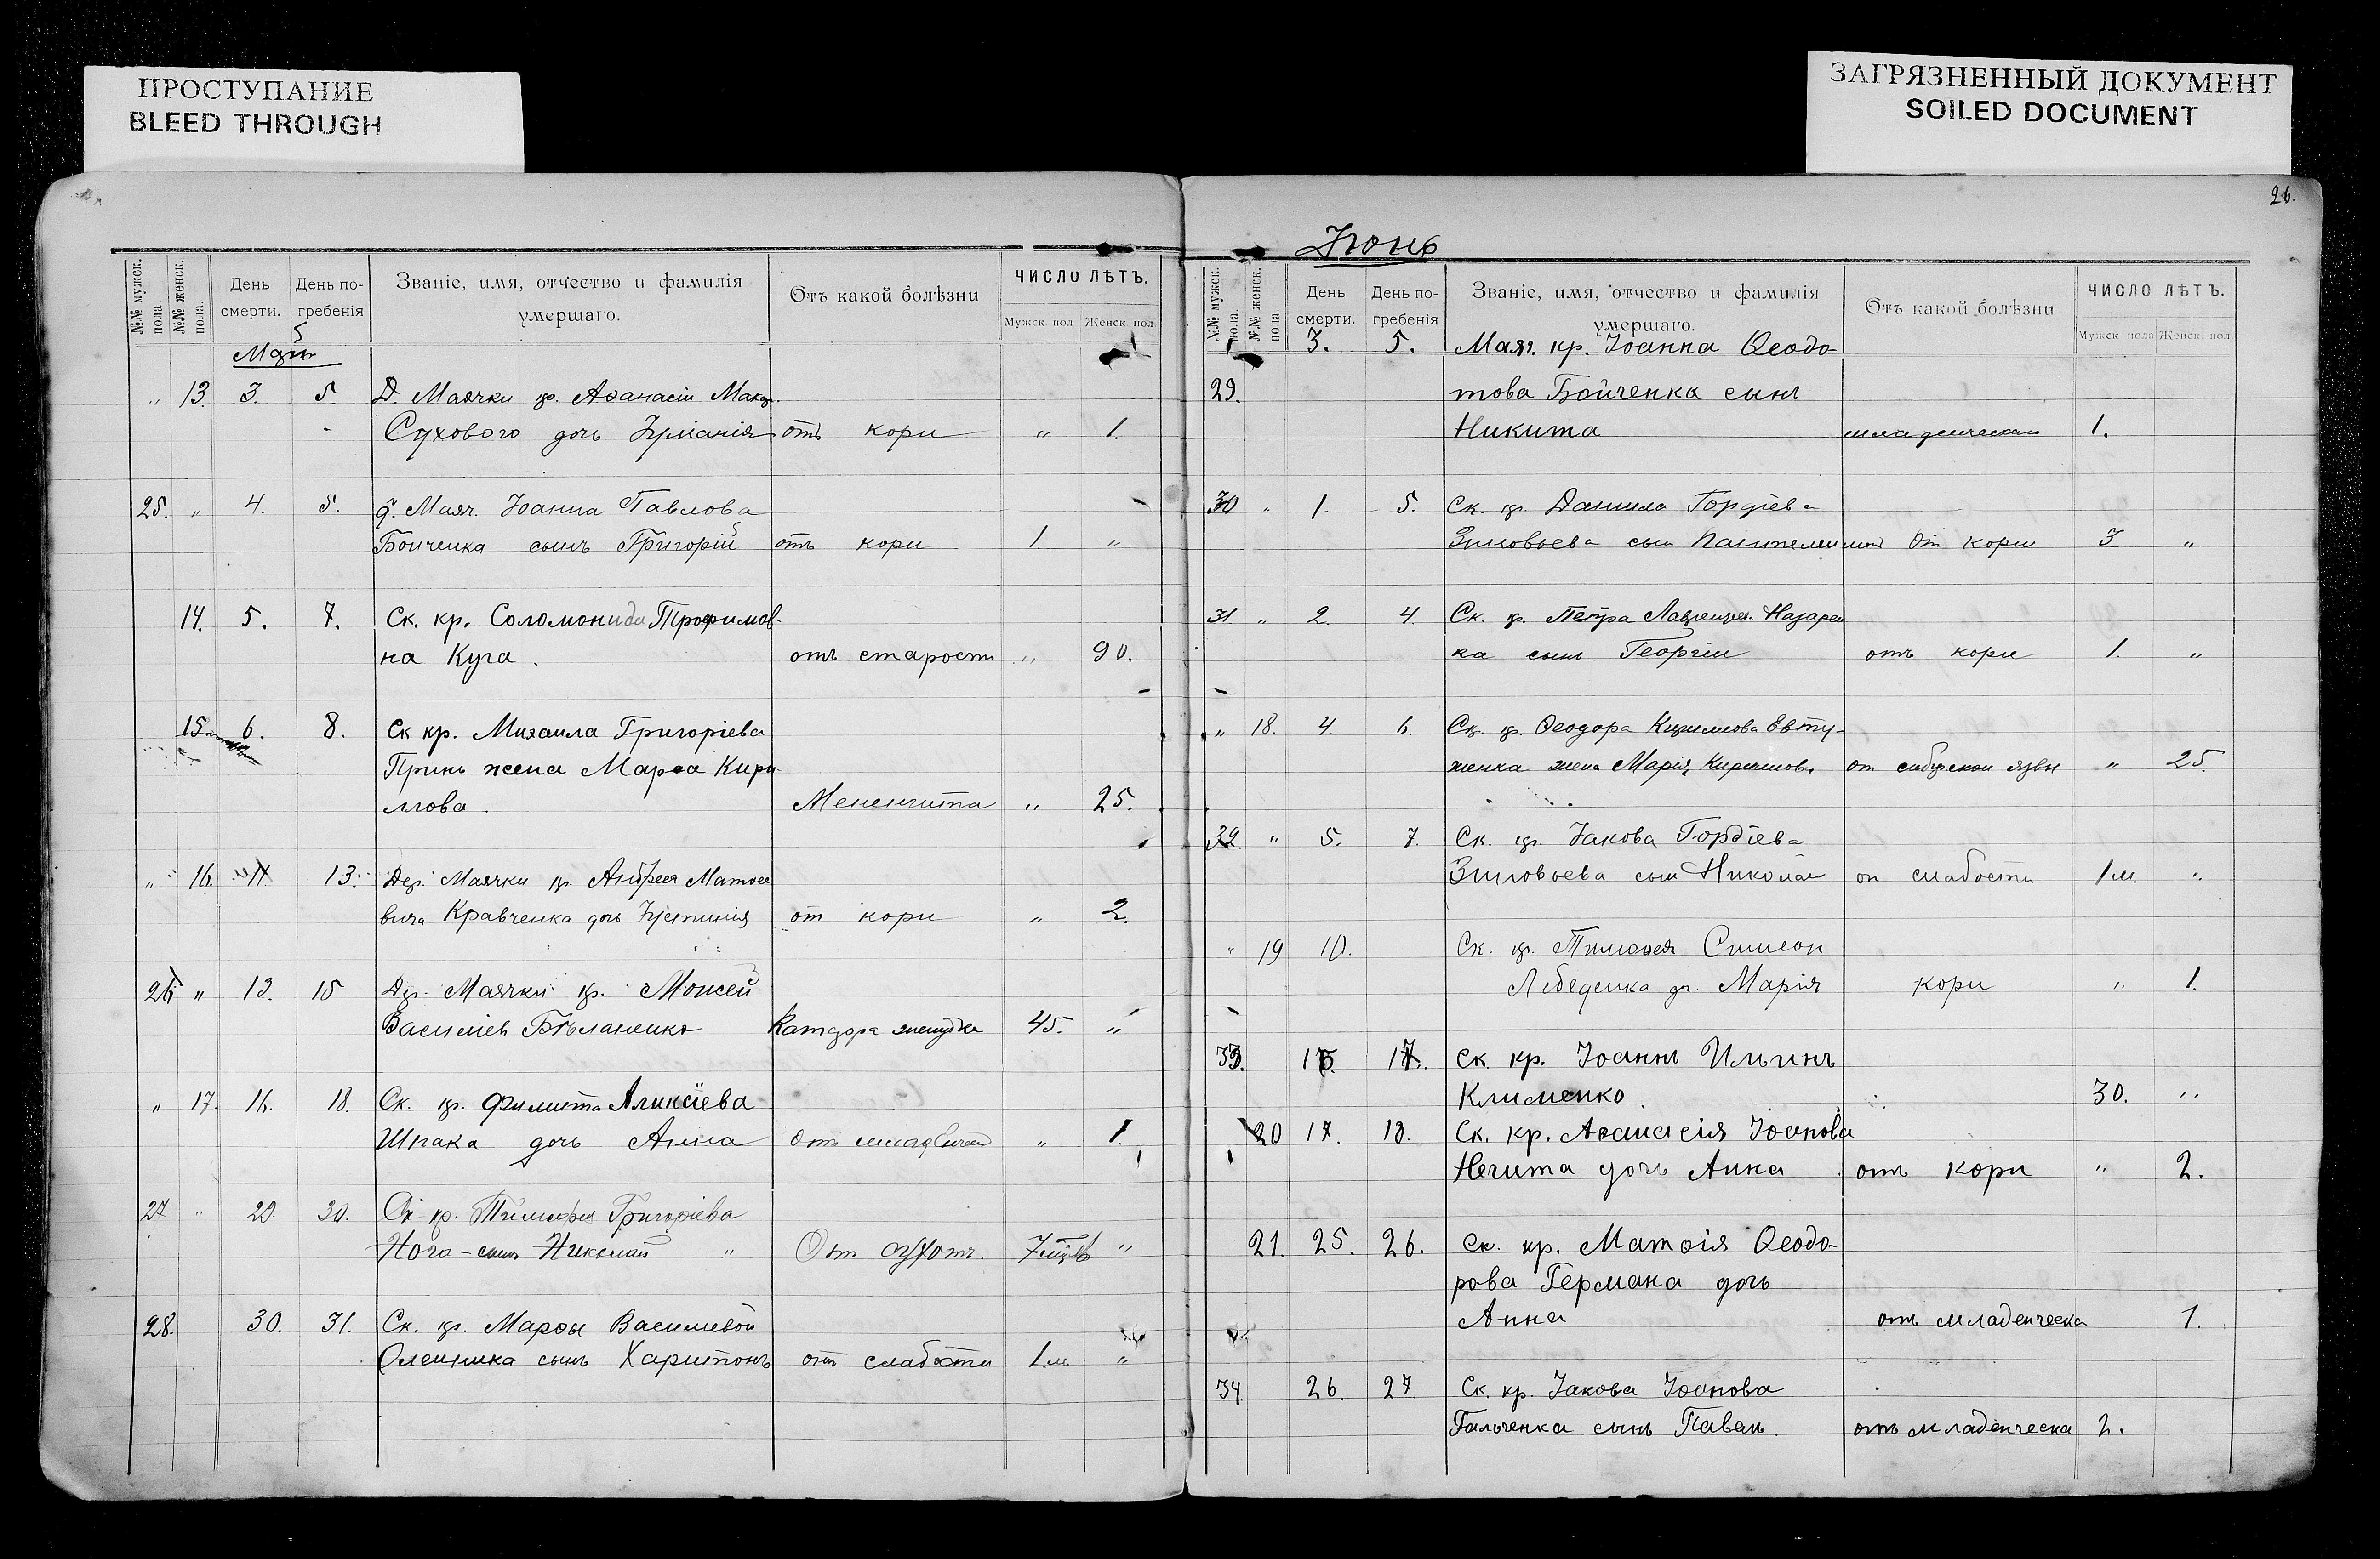 ПРОСТУПАНИЕ
BLEED THROUGH
ЗАГРЯЗНЕННЫЙ ДОКУМЕНТ
SOILED DOCUMENT
№№ мужск. пола.
№№ женск. пола.
День смерти.
День погребенія
Званіе, имя, отчество и фамилія
умершаго.
Отъ какой болѣзни
ЧИСЛО ЛѢТЪ.
Мужск. пол Женск. пол.
Май
„ 13. 3. 5. Д. Маячки кр. Аѳанасія
Сухового дочь Іуліанія отъ кори „ 1.
25. „ 4. 5. д. Маяч. Іоанна Павлова
Бойченка сынъ Григорій отъ кори 1. „
14. 5. 7. Ск. кр. Соломонида Трофимов-
на Куча. отъ старости „ 90.
15 6. 8. Ск кр. Михаила Григоріева
Принь жена Марѳа Кири-
ллова. Менингита „ 25.
„ 16. 11 13. Дер. Маячки кр. Андрея Матѳее
вича Кравченка дочь Іустинія от кори „ 2.
26 „ 13. 15 Дер. Маячки кр. Моисей
Василіев Бѣланенко Катарра желудка 45. „
„ 17. 16. 18. Ск. кр. Филиппа Аликсіева
Шпака дочь Анна „ 1.
27 „ 29. 30. Ск кр. Тимофея Григоріева
Нога - сынъ Николай „ От сухот.  „
28. 30. 31. Ск. кр. Марѳы Василіевой
Олейника сынъ Харитонъ отъ слабости 1 м „
26.
Іюнь
№№ мужск. пола.
№№ женск. пола.
День смерти.
День погребенія
Званіе, имя, отчество и фамилія
умершаго.
Отъ какой болѣзни
ЧИСЛО ЛѢТЪ.
Мужск пола Женск. пол.
3. 5. Маяч. кр. Іоанна Ѳеодо-
29. това Бойченка сынъ
Никита младенческая 1.
30 „ 1. 5. Ск. кр. Данила Гордіева
Зиновьева сын Пантелеимон От кори 3. „
31. „ 2. 4. Ск. кр. Петра Назарен
ка сынъ Георгій отъ кори 1. „
„ 18. 4. 6. Ск. кр. Ѳеодора Кириллова Евту-
женка жена Марія Кириллова от сибирской язвы „ 25.
32. „ 5. 7. Ск. кр. Іакова Гордіева
Зиновьева сын Николай от слабости 1 м. „
„ 19 10. Ск. кр. Тимоѳея Симеон
Лебеденка дч. Марія кори „ 1.
33. 15. 17. Ск. кр. Іоаннъ Ильинъ
Клименко. 30. „
20 17. 18. Ск. кр. Аѳанасія Іоанова
Нечита дочь Анна отъ кори „ 2.
21. 25. 26. Ск. кр. Матѳія Ѳеодо-
рова Германа дочь
Анна отъ младенческа 1.
34 26. 27. Ск. кр. Іакова Іоанова
Гальченка сынъ Павелъ. отъ младенческа 2.